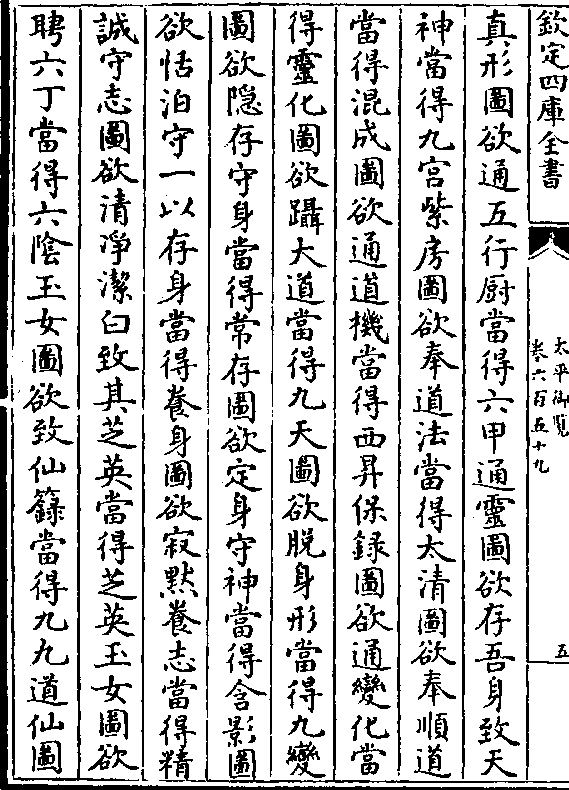 欽定四庫全書
太平御覽
卷六百五十九
五
真形圖欲通五行厨當得六甲通靈圖欲存吾身致天
神當得九宮紫房圖欲奉道法當得太清圖欲奉順道
當得混成圖欲通道機當得西昇保錄圖欲通變化當
得靈化圖欲躡大道當得九天圖欲脫身形當得九變
圖欲隐存守身當得常存圖欲定身守神當得含影圖
欲恬泊守一以存身當得養身圖欲寂默養志當得精
誠守志圖欲清淨潔白致其芝英當得芝英玉女圖欲
聘六丁當得六隂玉女圖欲致仙籙當得九九道仙圖